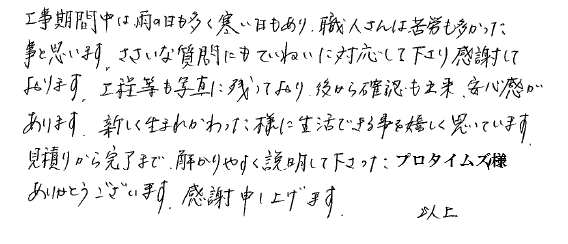 工事期間中は雨の日も多く寒い日もあり、職人さんは苦労も多かった
事と思います。ささいな質問にもていねいに対応して下さり感謝して
おります。工程等も写真に残っており、後から確認も出来、安心感が
あります。新しく生まれかわった様に生活できる事を嬉しく思っています。
見積りから完了まで、解かりやすく説明して下さった、プロタイムズ様
ありがとうございます。感謝申し上げます。
以上